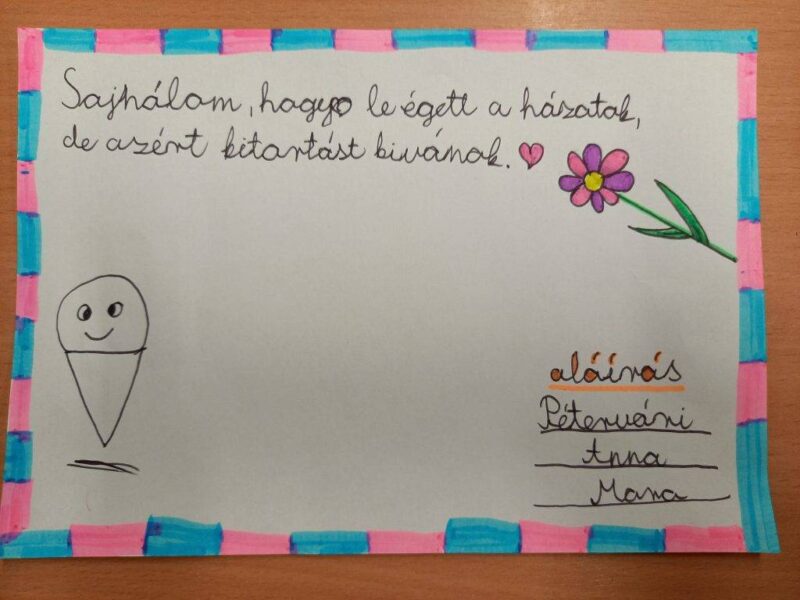 Sajhálom, hogy le égett a házatok,
de azért kitartást kivánok.
aláírás
Pétervári
Anna
Mara